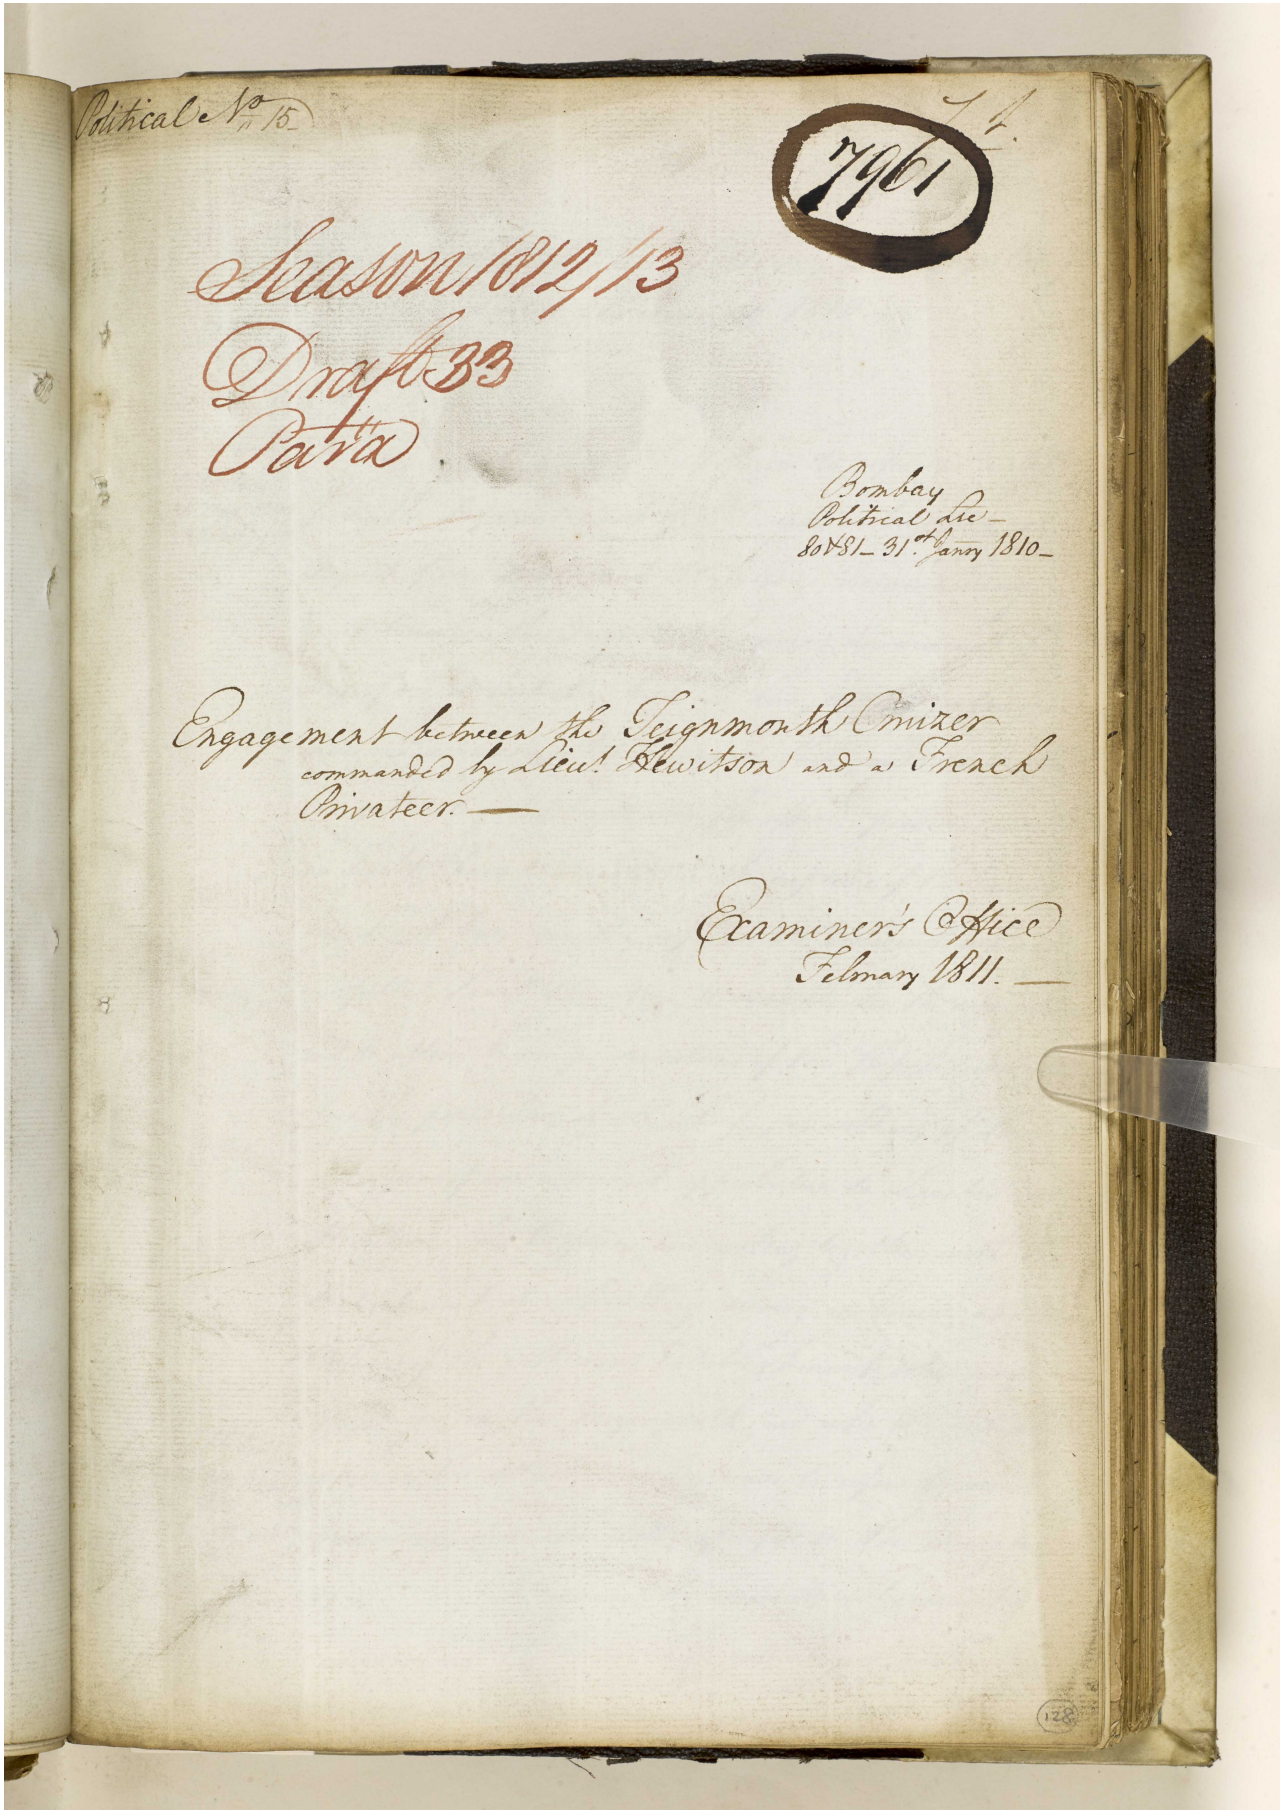 Political No 15
74.
7961
Season 1812/13
Draft 33
Para
Bombay
Political
80 & 81 - 31st Janry 1810 -
Engagement between the Teignmouth Cruizer
commanded by Lieut. Hewitson and a French
Privateer. —
Examiner's Office
February 1811. —
128